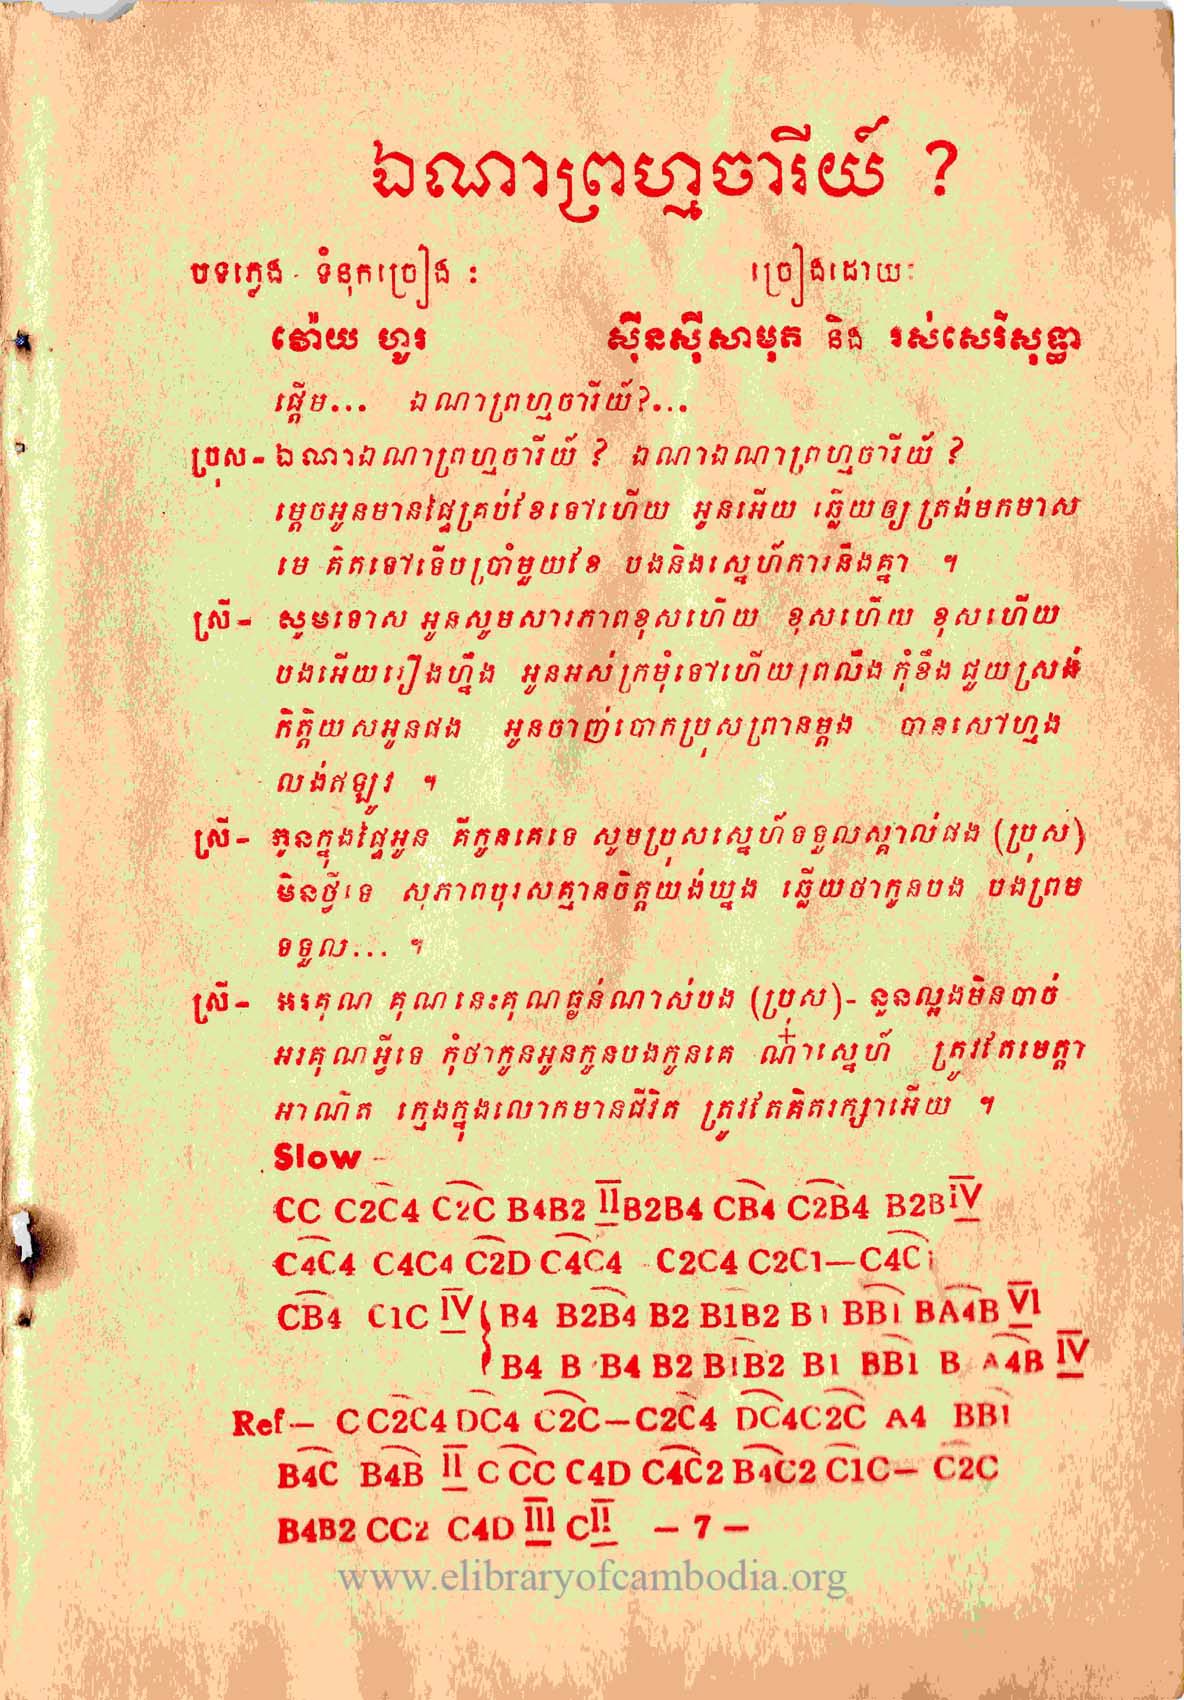 ឯណាព្រហ្មចារីយ៍ ?
បទភ្លេង - ទំនុកច្រៀង : ច្រៀងដោយ:
វ៉ោយ ហូរ ស៊ីនស៊ីសាមុត និង រស់សេរីសុទ្ធា
ផ្ដើម... ឯណាព្រហ្មចារីយ៍?...
ប្រុស- ឯណាឯណាព្រហ្មចារីយ៍ ? ឯណាឯណាព្រហ្មចារីយ៍ ?
ម្ដេចអូនមានផ្ទៃគ្រប់ខែទៅហើយ អូនអើយ ឆ្លើយឲ្យត្រង់មកមាស
មេ គិតទៅទើបប្រាំមួយខែ បងនិងស្នេហ៍ការនឹងគ្នា ។
ស្រី- សូមទោស អូនសូមសារភាពខុសហើយ ខុសហើយ ខុសហើយ
បងអើយរឿងហ្នឹង អូនអស់ក្រមុំទៅហើយព្រលឹង កុំខឹង ជួយស្រង់
កិត្តិយសអូនផង អូនចាញ់បោកប្រុសព្រានម្ដង បានសៅហ្មង
លង់ឥឡូវ ។
ស្រី- កូនក្នុងផ្ទៃអូន គឺកូនគេទេ សូមប្រុសស្នេហ៍ទទួលស្គាល់ផង (ប្រុស)
មិនថ្វីទេ សុភាពបុរសគ្មានចិត្តយង់ឃ្នង ឆ្លើយថាកូនបង បងព្រម
ទទួល... ។
ស្រី- អរគុណ គុណនេះគុណធ្ងន់ណាស់បង (ប្រុស)- នួនល្អងមិនបាច់
អរគុណអ្វីទេ កុំថាកូនអូនកូនបងកូនគេ ណ៎ាស្នេហ៍ ត្រូវតែមេត្តា
អាណិត ក្មេងក្នុងលោកមានជីវិត ត្រូវតែគិតរក្សាអើយ ។
Slow
CC C2C4 C2C B4B2 II B2B4 CB4 C2B4 B2B IV
C4C4 C4C4 C2D C4C4 C2C4 C2C1—C4C1
CB4 C1C IV { B4 B2B4 B2 B1B2 B1 BB1 BA4B VI
B4 B B4 B2 B1B2 B1 BB1 B A4B IV
Ref— C C2C4 DC4 C2C—C2C4 DC4C2C A4 BB1
B4C B4B II C CC C4D C4C2 B4C2 C1C— C2C
B4B2 CC2 C4D III C II — 7 —
www.elibraryofcambodia.org